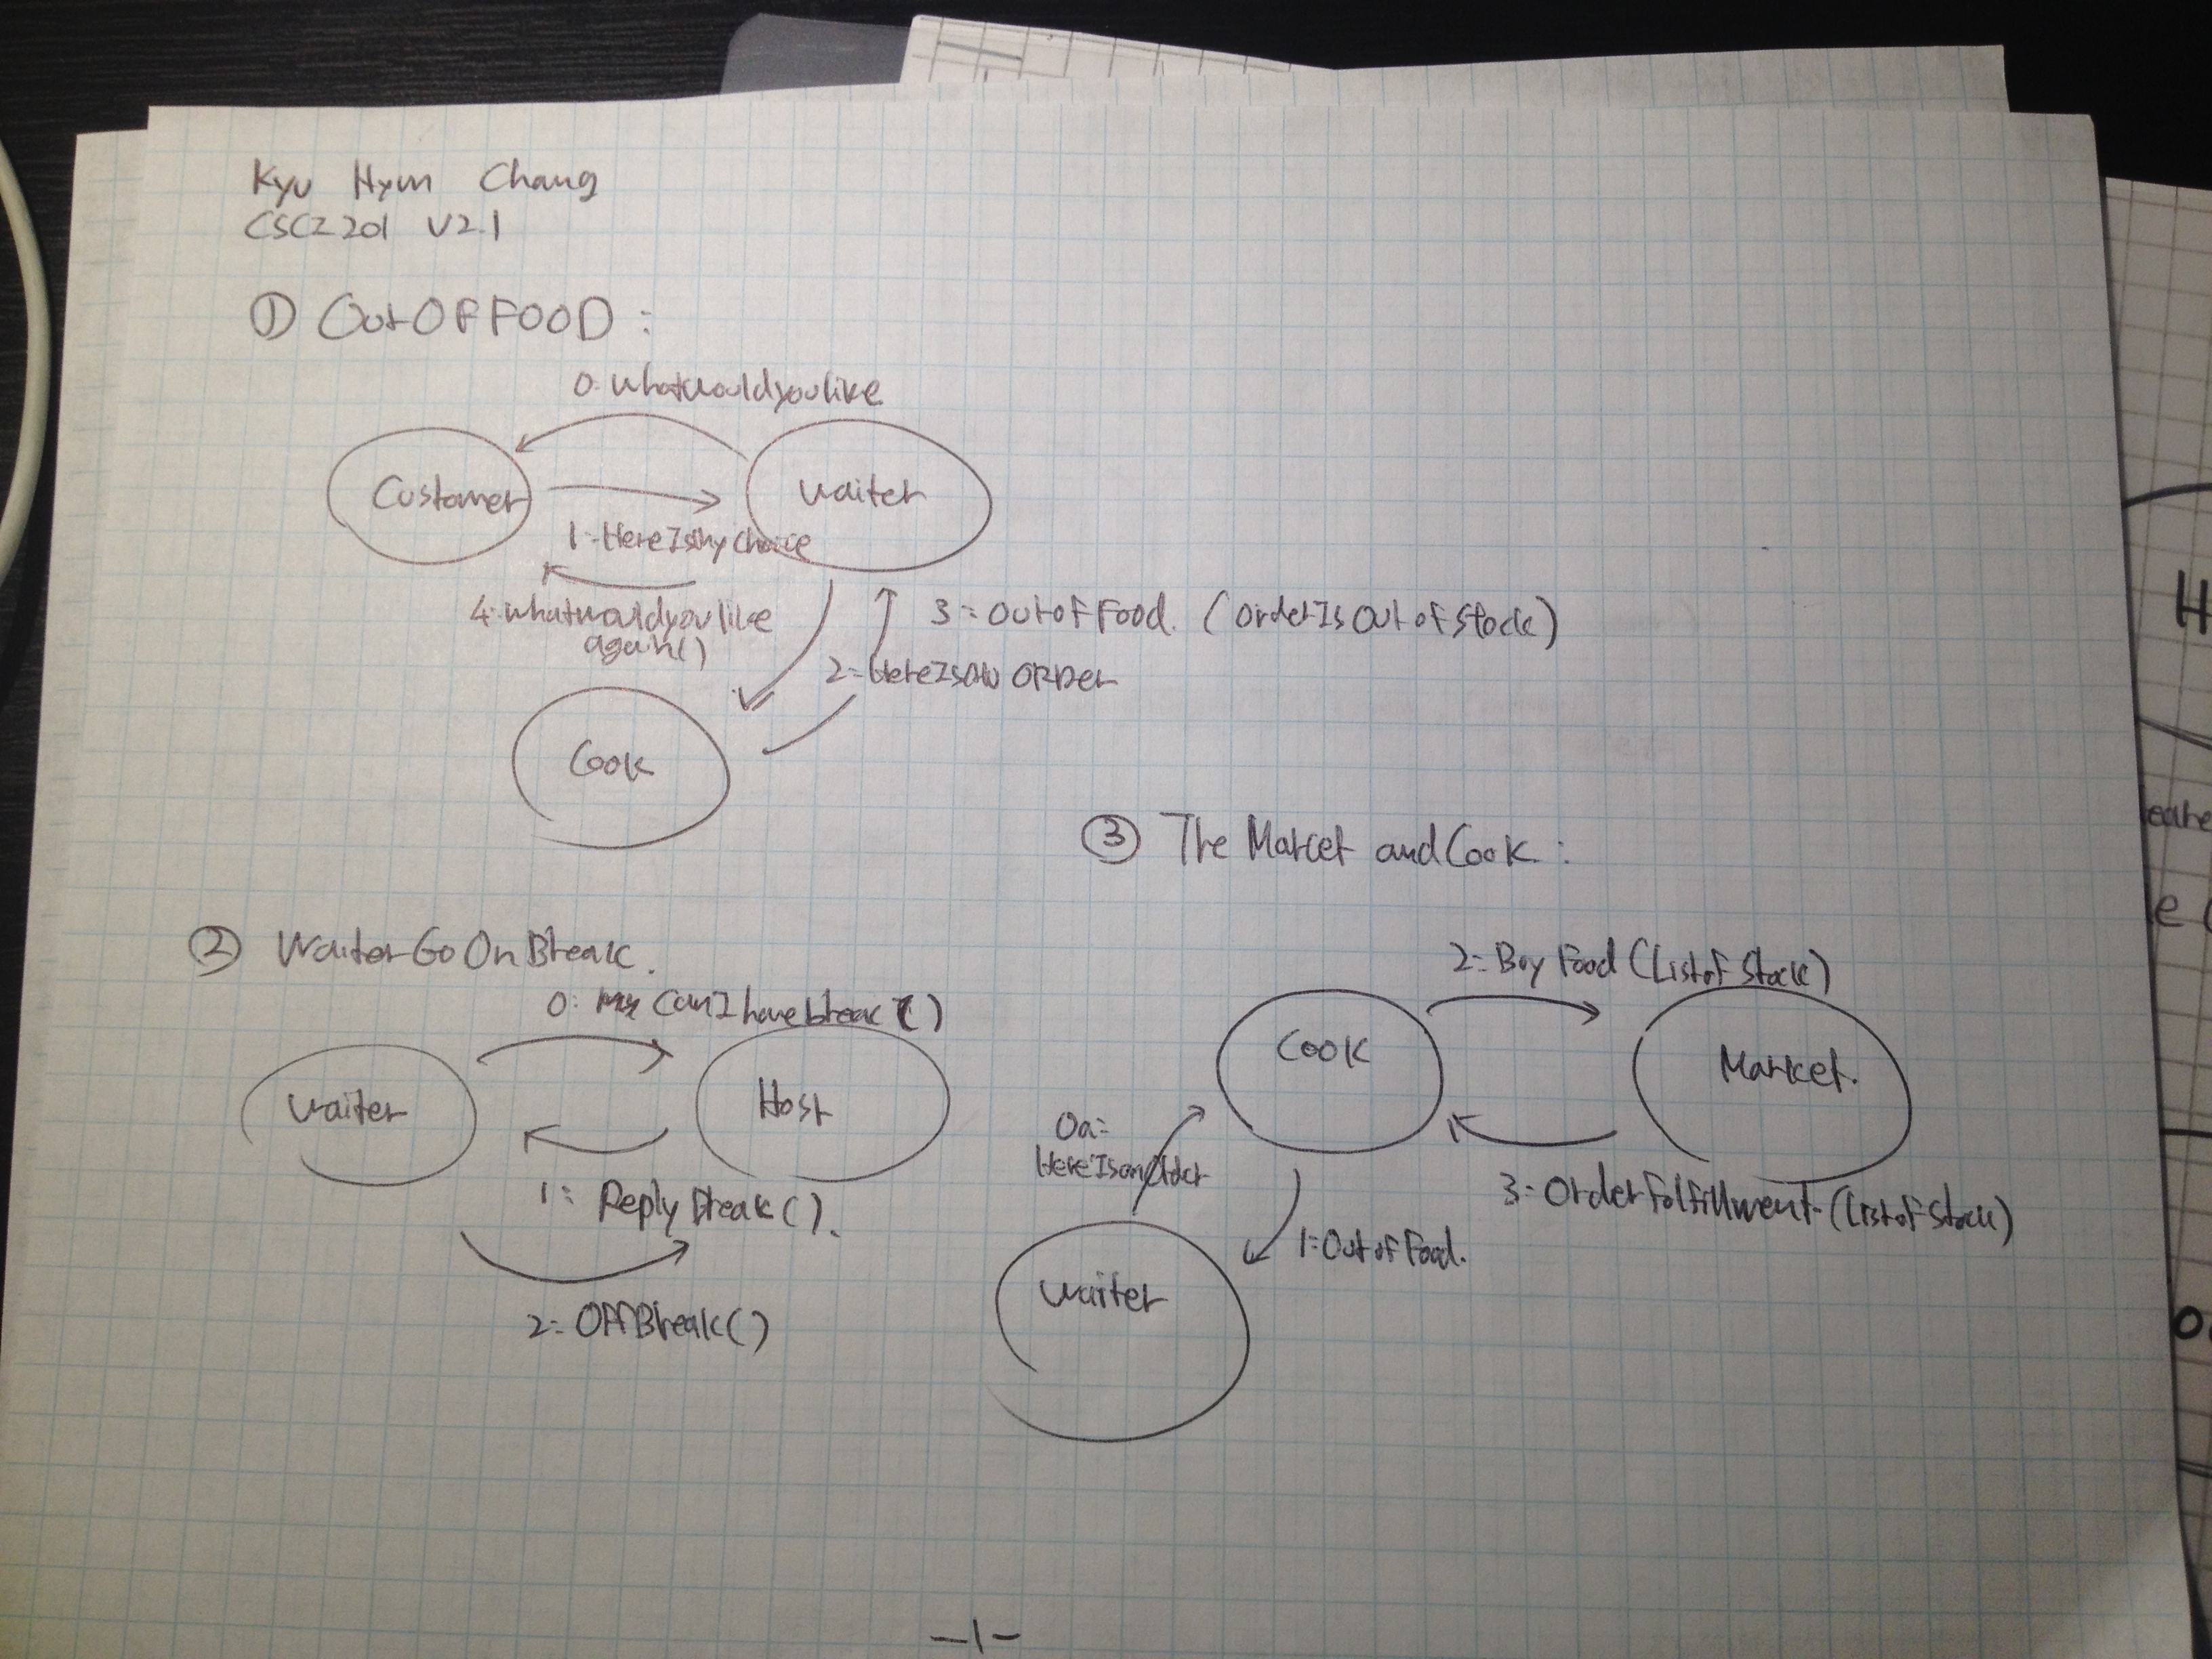 Kyu Hyun Chang
CSCI 201 V2.1
① OutOFFOOD :
0: whatwouldyoulike
Customer
waiter
1: HereIsMyChoice
4: whatwouldyoulike
again()
3: outofFood. (orderIsOutofStock)
2: HereIsAn ORDer
Cook
② WaiterGoOnBreak.
0: CanIhavebreak()
waiter
Host
1: ReplyBreak().
2: OffBreak()
③ The Market and Cook :
2: Buy Food (ListofStock)
Cook
Market.
0a:
HereIsanOrder
3: OrderFulfillment (ListofStock)
1: OutofFood.
waiter
-1-
H
eahe
e